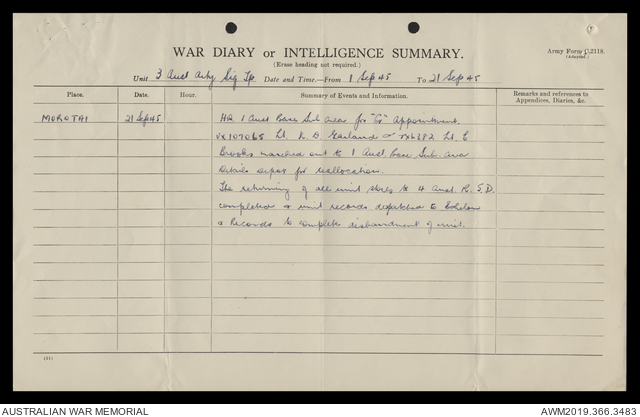 WAR DIARY or INTELLIGENCE SUMMARY.
Army Form C.2118.
(Adapted.)
(Erase heading not required.)
Unit 3 Aust Arty Sig Tp. Date and Time.—From 1 Sep 45 To 21 Sep 45
Place. Date. Hour. Summary of Events and Information. Remarks and references to
Appendices, Diaries, &c.
MOROTAI 21 Sep 45 HQ 1 Aust Base Sub Area for "Q" Appointment.
VX107065 Lt. R. D. Garland & Lt. E
Brooks marched out to 1 Aust. Base Sub. Area
Details Depot for reallocation.
The returning of all unit stores to 4 Aust. R. S. D.
completed & unit records despatched to
& Records to complete disbandment of unit.
AUSTRALIAN WAR MEMORIAL
AWM2019.366.3483